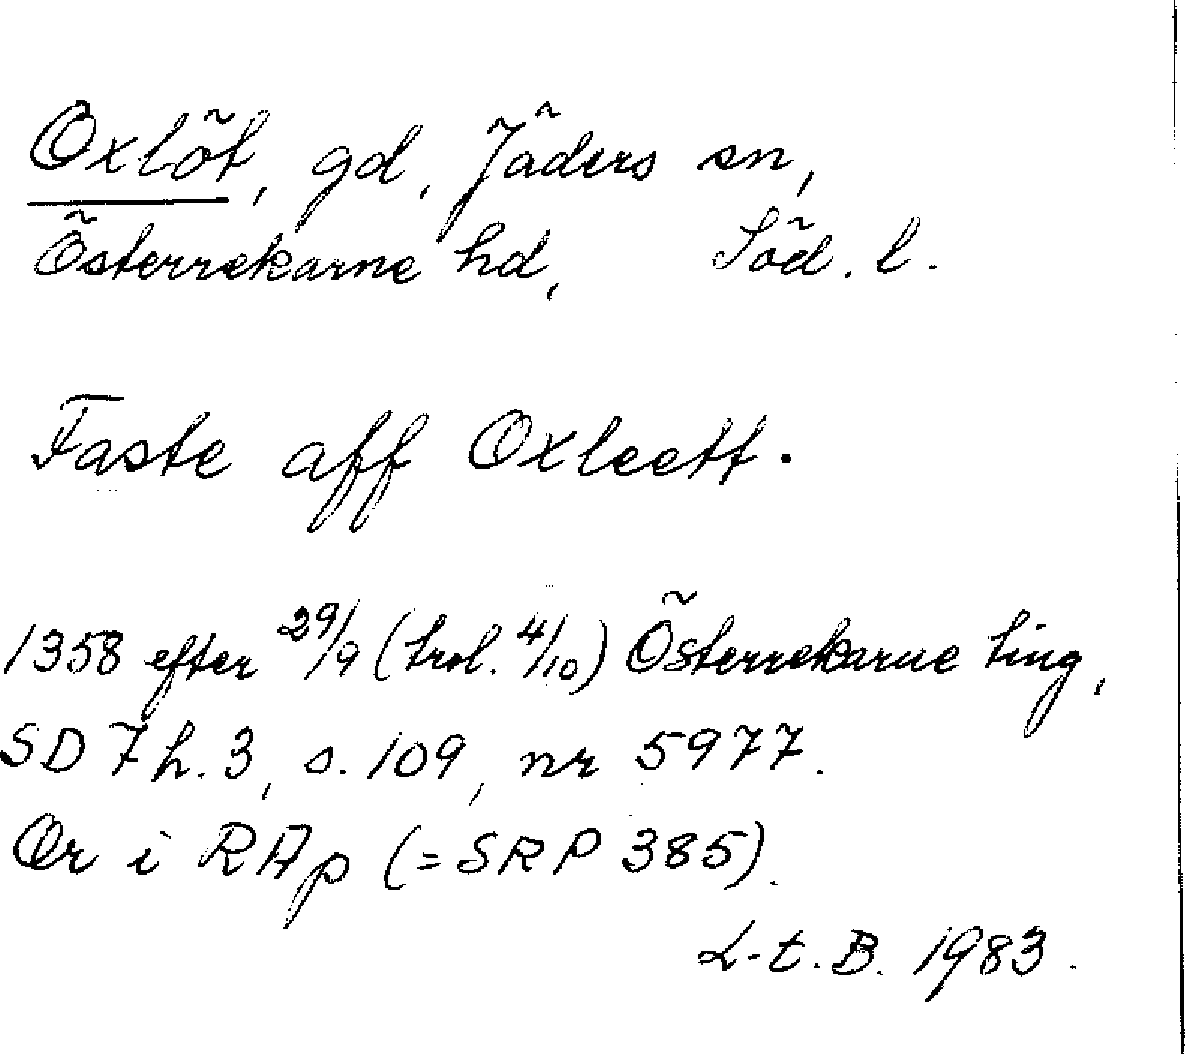 Oxlöt, gd, Jäders sn,
Österrekarne hd, Söd. l.
Faste aff Oxleett.
1358 efter 29/9 (trol. 4/10) Österrekarne ting,
SD 7 h. 3, s. 109, nr 5977.
Or i RAp (= SRP 385).
L-t. B. 1983.